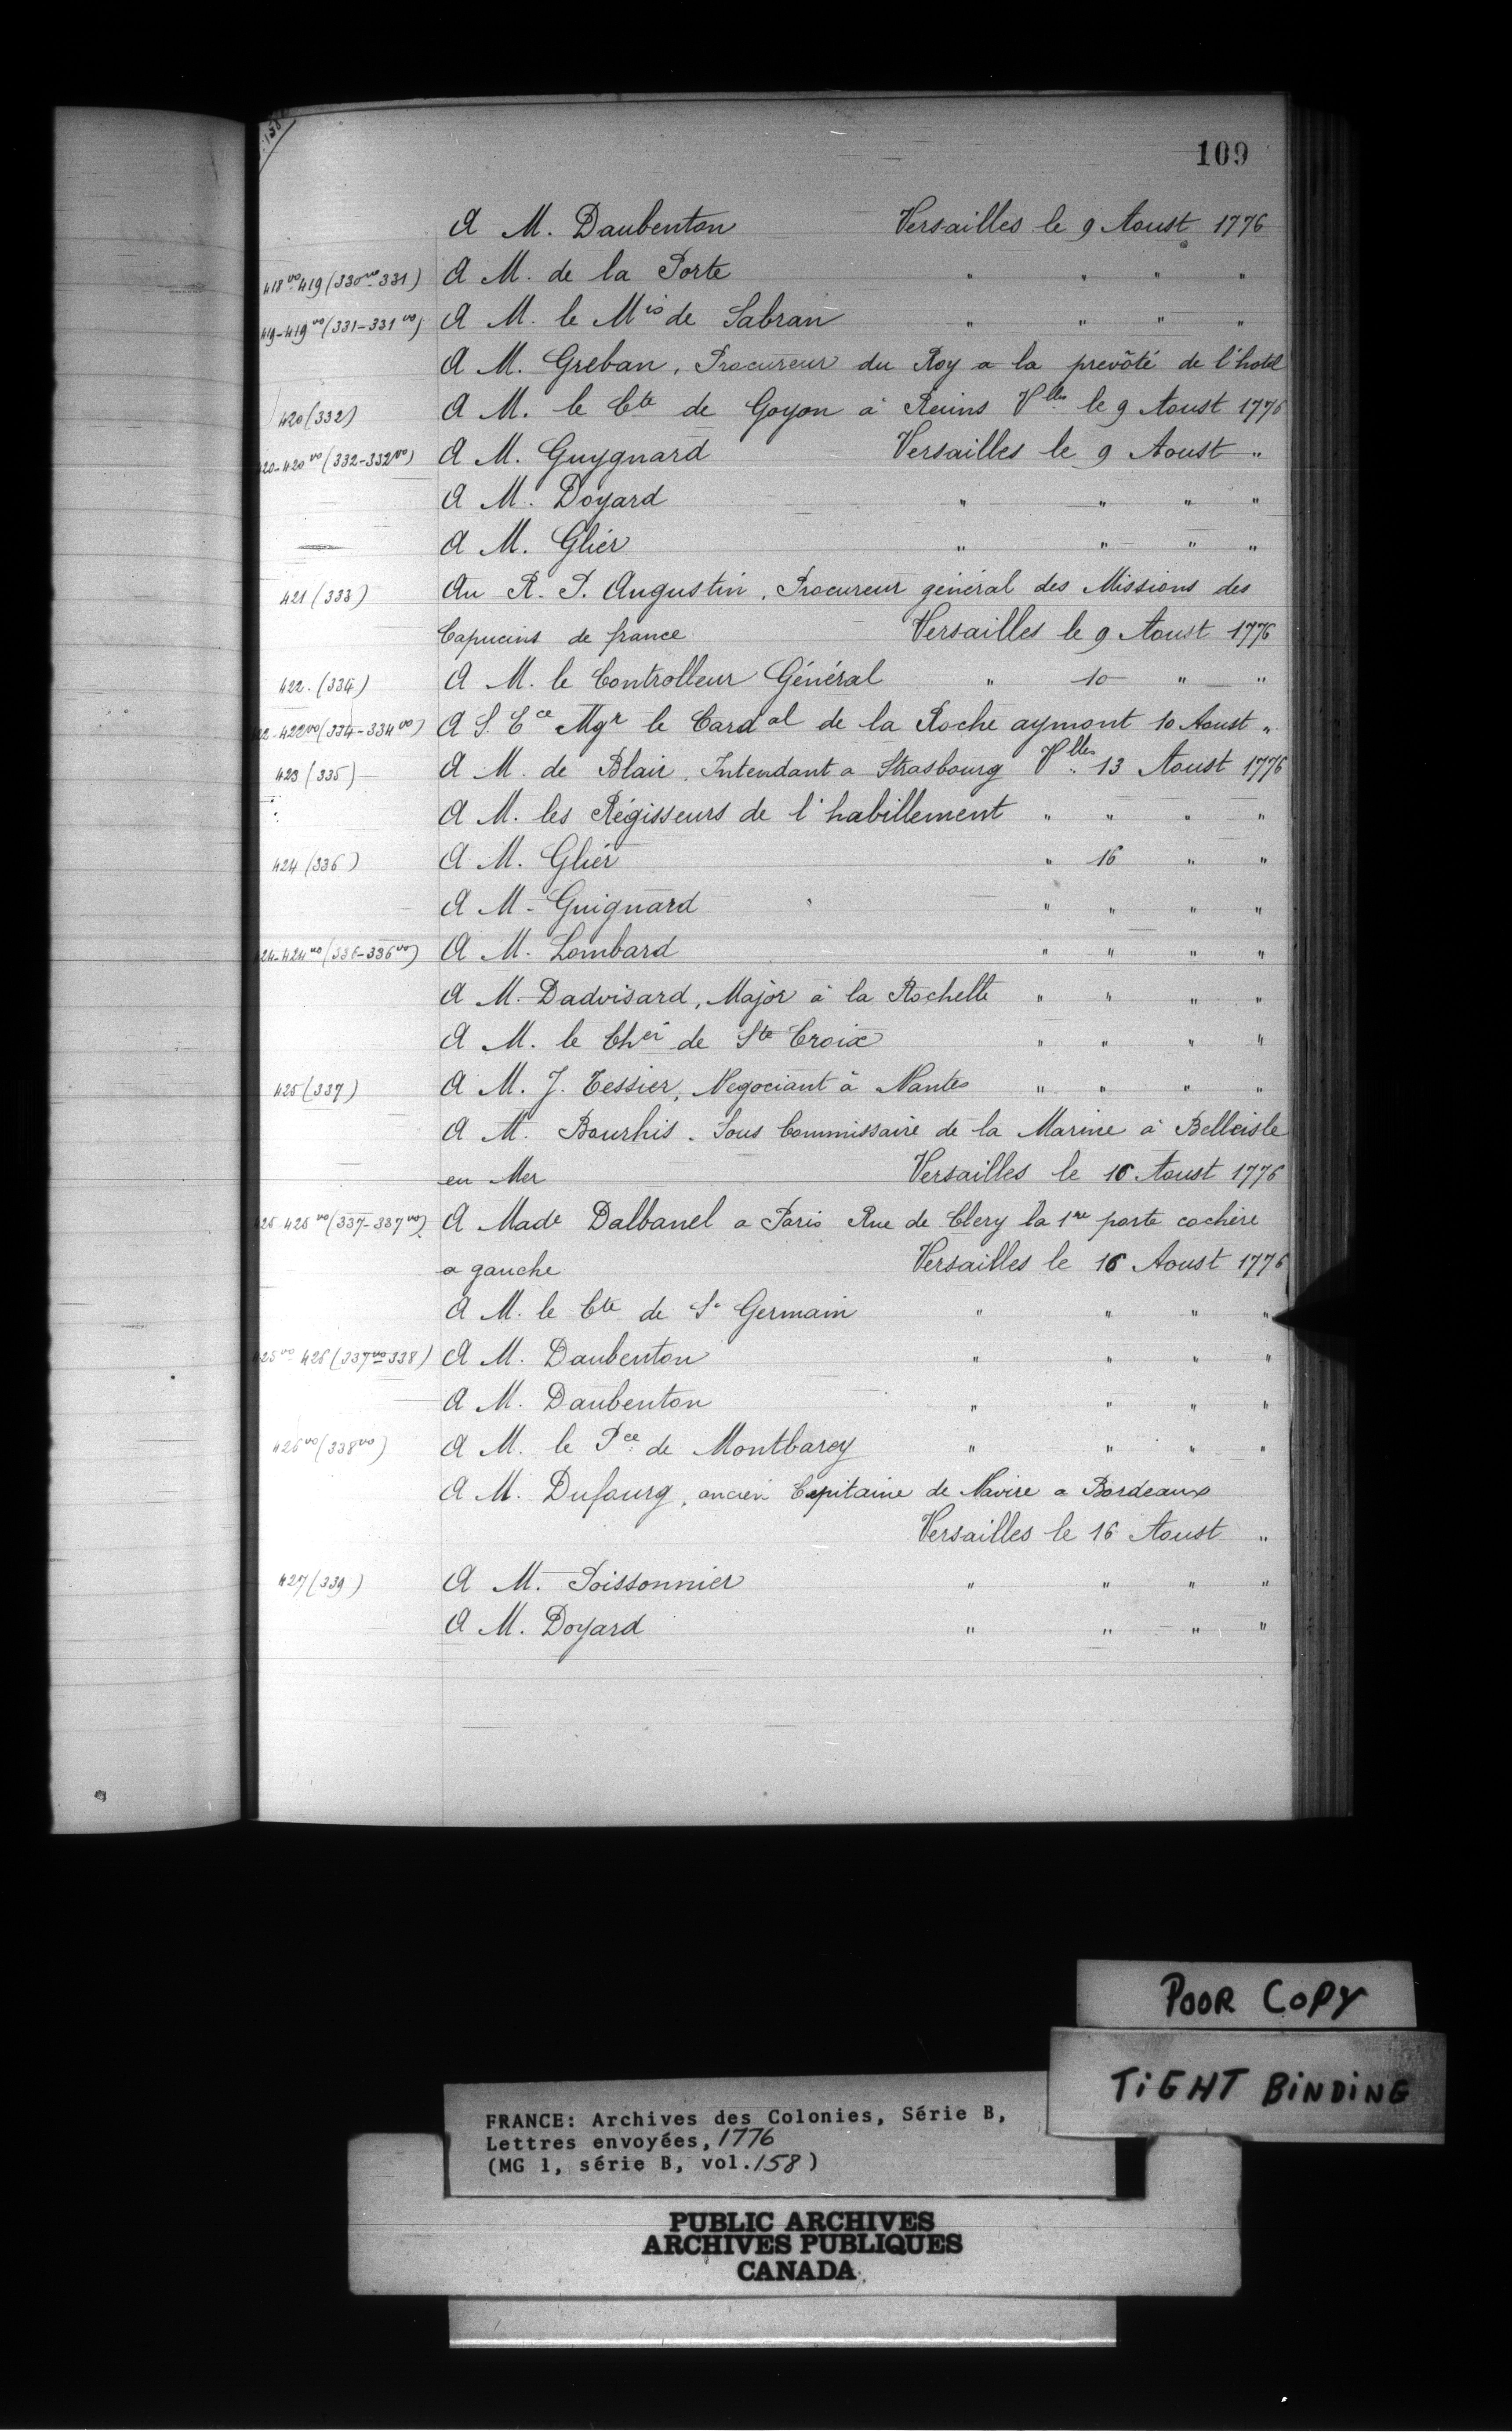 158
109
A M. Daubenton Versailles le 9 Aoust 1776
418 vo 419 (330 vo 331) A M. de la Porte " " " "
419-419 vo (331-331 vo) A M. le Mis de Sabran " " " "
A M. Greban, Procureur du Roy a la prevôté de l'hotel
420 (332) A M. le Cte de Goyon à Reims Vlles le 9 Aoust 1776
420-420 vo (332-332 vo) A M. Guygnard Versailles le 9 Aoust "
A M. Doyard " " " "
A M. Gliér " " " "
421 (333) Au R. P. Augustin, Procureur général des Missions des
Capucins de france Versailles le 9 Aoust 1776
422. (334) A M. le Controlleur Général " 10 " "
22-422 vo (334-334 vo) A S. Ece Mgr le Cardal de la Roche aymont 10 Aoust "
423 (335) A M. de Blair, Intendant a Strasbourg Vlles 13 Aoust 1776
A M. les Régisseurs de l'habillement " " " "
424 (336) A M. Gliér " 16 " "
A M. Guignard " " " "
24-424 vo (336-336 vo) A M. Lombard " " " "
A M. Dadvisard, Major à la Rochelle " " " "
A M. le Cher de Ste Croix " " " "
425 (337) A M. J. Tessier, Negociant à Nantes " " " "
A M. Bourhis, Sous Commissaire de la Marine à Belleisle
en Mer Versailles le 16 Aoust 1776
25-425 vo (337-337 vo) A Made Dalbanel a Paris Rue de Clery la 1re porte cochère
a gauche Versailles le 16 Aoust 1776
A M. le Cte de St Germain " " " "
425 vo 426 (337 vo-338) A M. Daubenton " " " "
A M. Daubenton " " " "
426 vo (338 vo) A M. le Pce de Montbarey " " " "
A M. Dufourg, ancien Capitaine de Navire a Bordeaux
Versailles le 16 Aoust "
427 (339) A M. Poissonnier " " " "
A M. Doyard " " " "
POOR COPY
TiGHT BiNDiNG
FRANCE: Archives des Colonies, Série B,
Lettres envoyées, 1776
(MG 1, série B, vol. 158)
PUBLIC ARCHIVES
ARCHIVES PUBLIQUES
CANADA